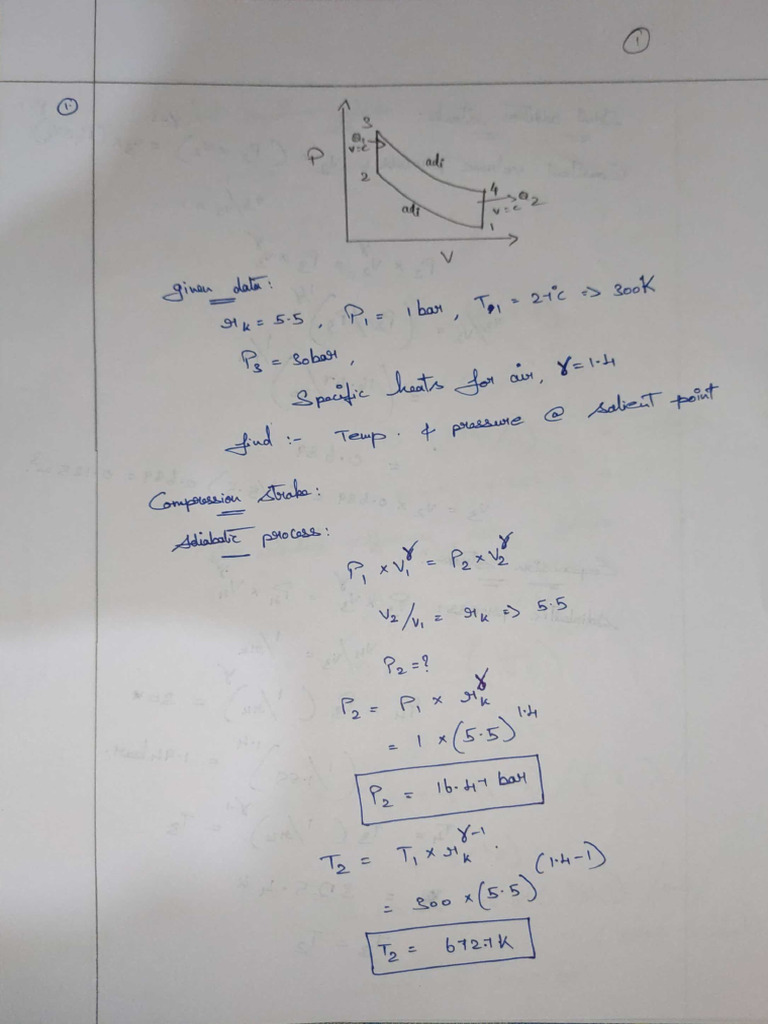 1
1.
3
Q1
V=C
P
adi
2
4
Q2
V=C
adi
1
V
given data:
rk = 5.5 , P1 = 1 bar , T1 = 27°C => 300K
P3 = 30bar ,
Specific heats for air, γ=1.4
find :- Temp. & pressure @ salient point
Compression stroke:
Adiabatic process:
P1 × V1^γ = P2 × V2^γ
V2/V1 = rk => 5.5
P2 = ?
P2 = P1 × rk^γ
= 1 × (5.5)^1.4
P2 = 16.47 bar
T2 = T1 × rk^γ-1
= 300 × (5.5)^(1.4-1)
T2 = 672.7K